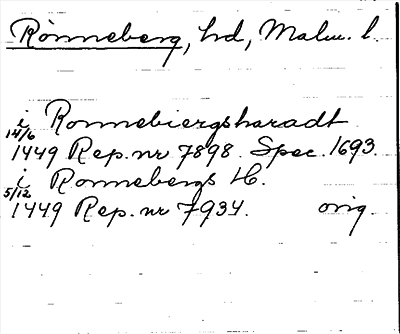 Rönneberg, hd, Malm. l.
i Ronnebiergsharadt
14/6 1449 Rep. nr 7898. Spec. 1693.
i Ronnebergs H.
5/12 1449 Rep. nr 7934. orig.